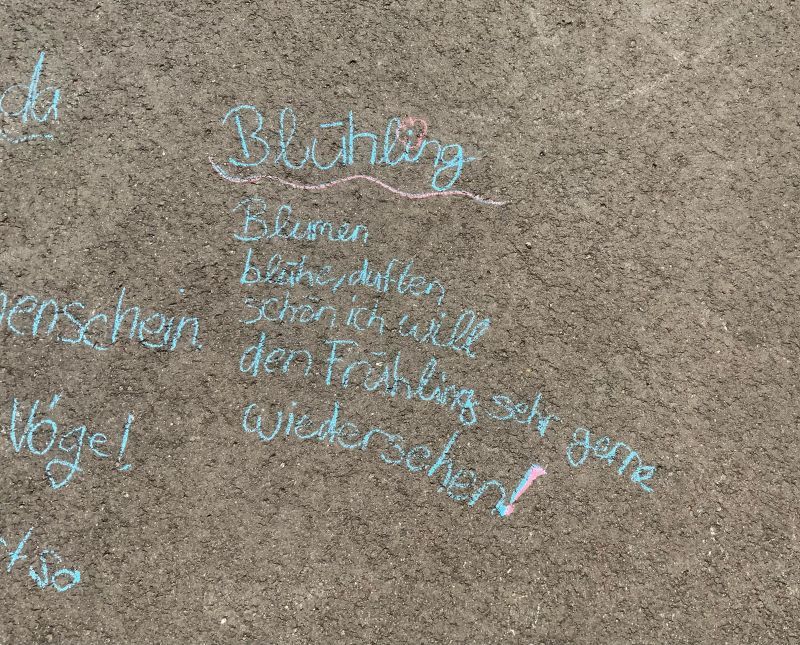 da
Blühling
Blumen
blühe, duften,
schön, ich will
den Frühling sehr gerne
wiedersehen!
nenschein
Vöge!
t so